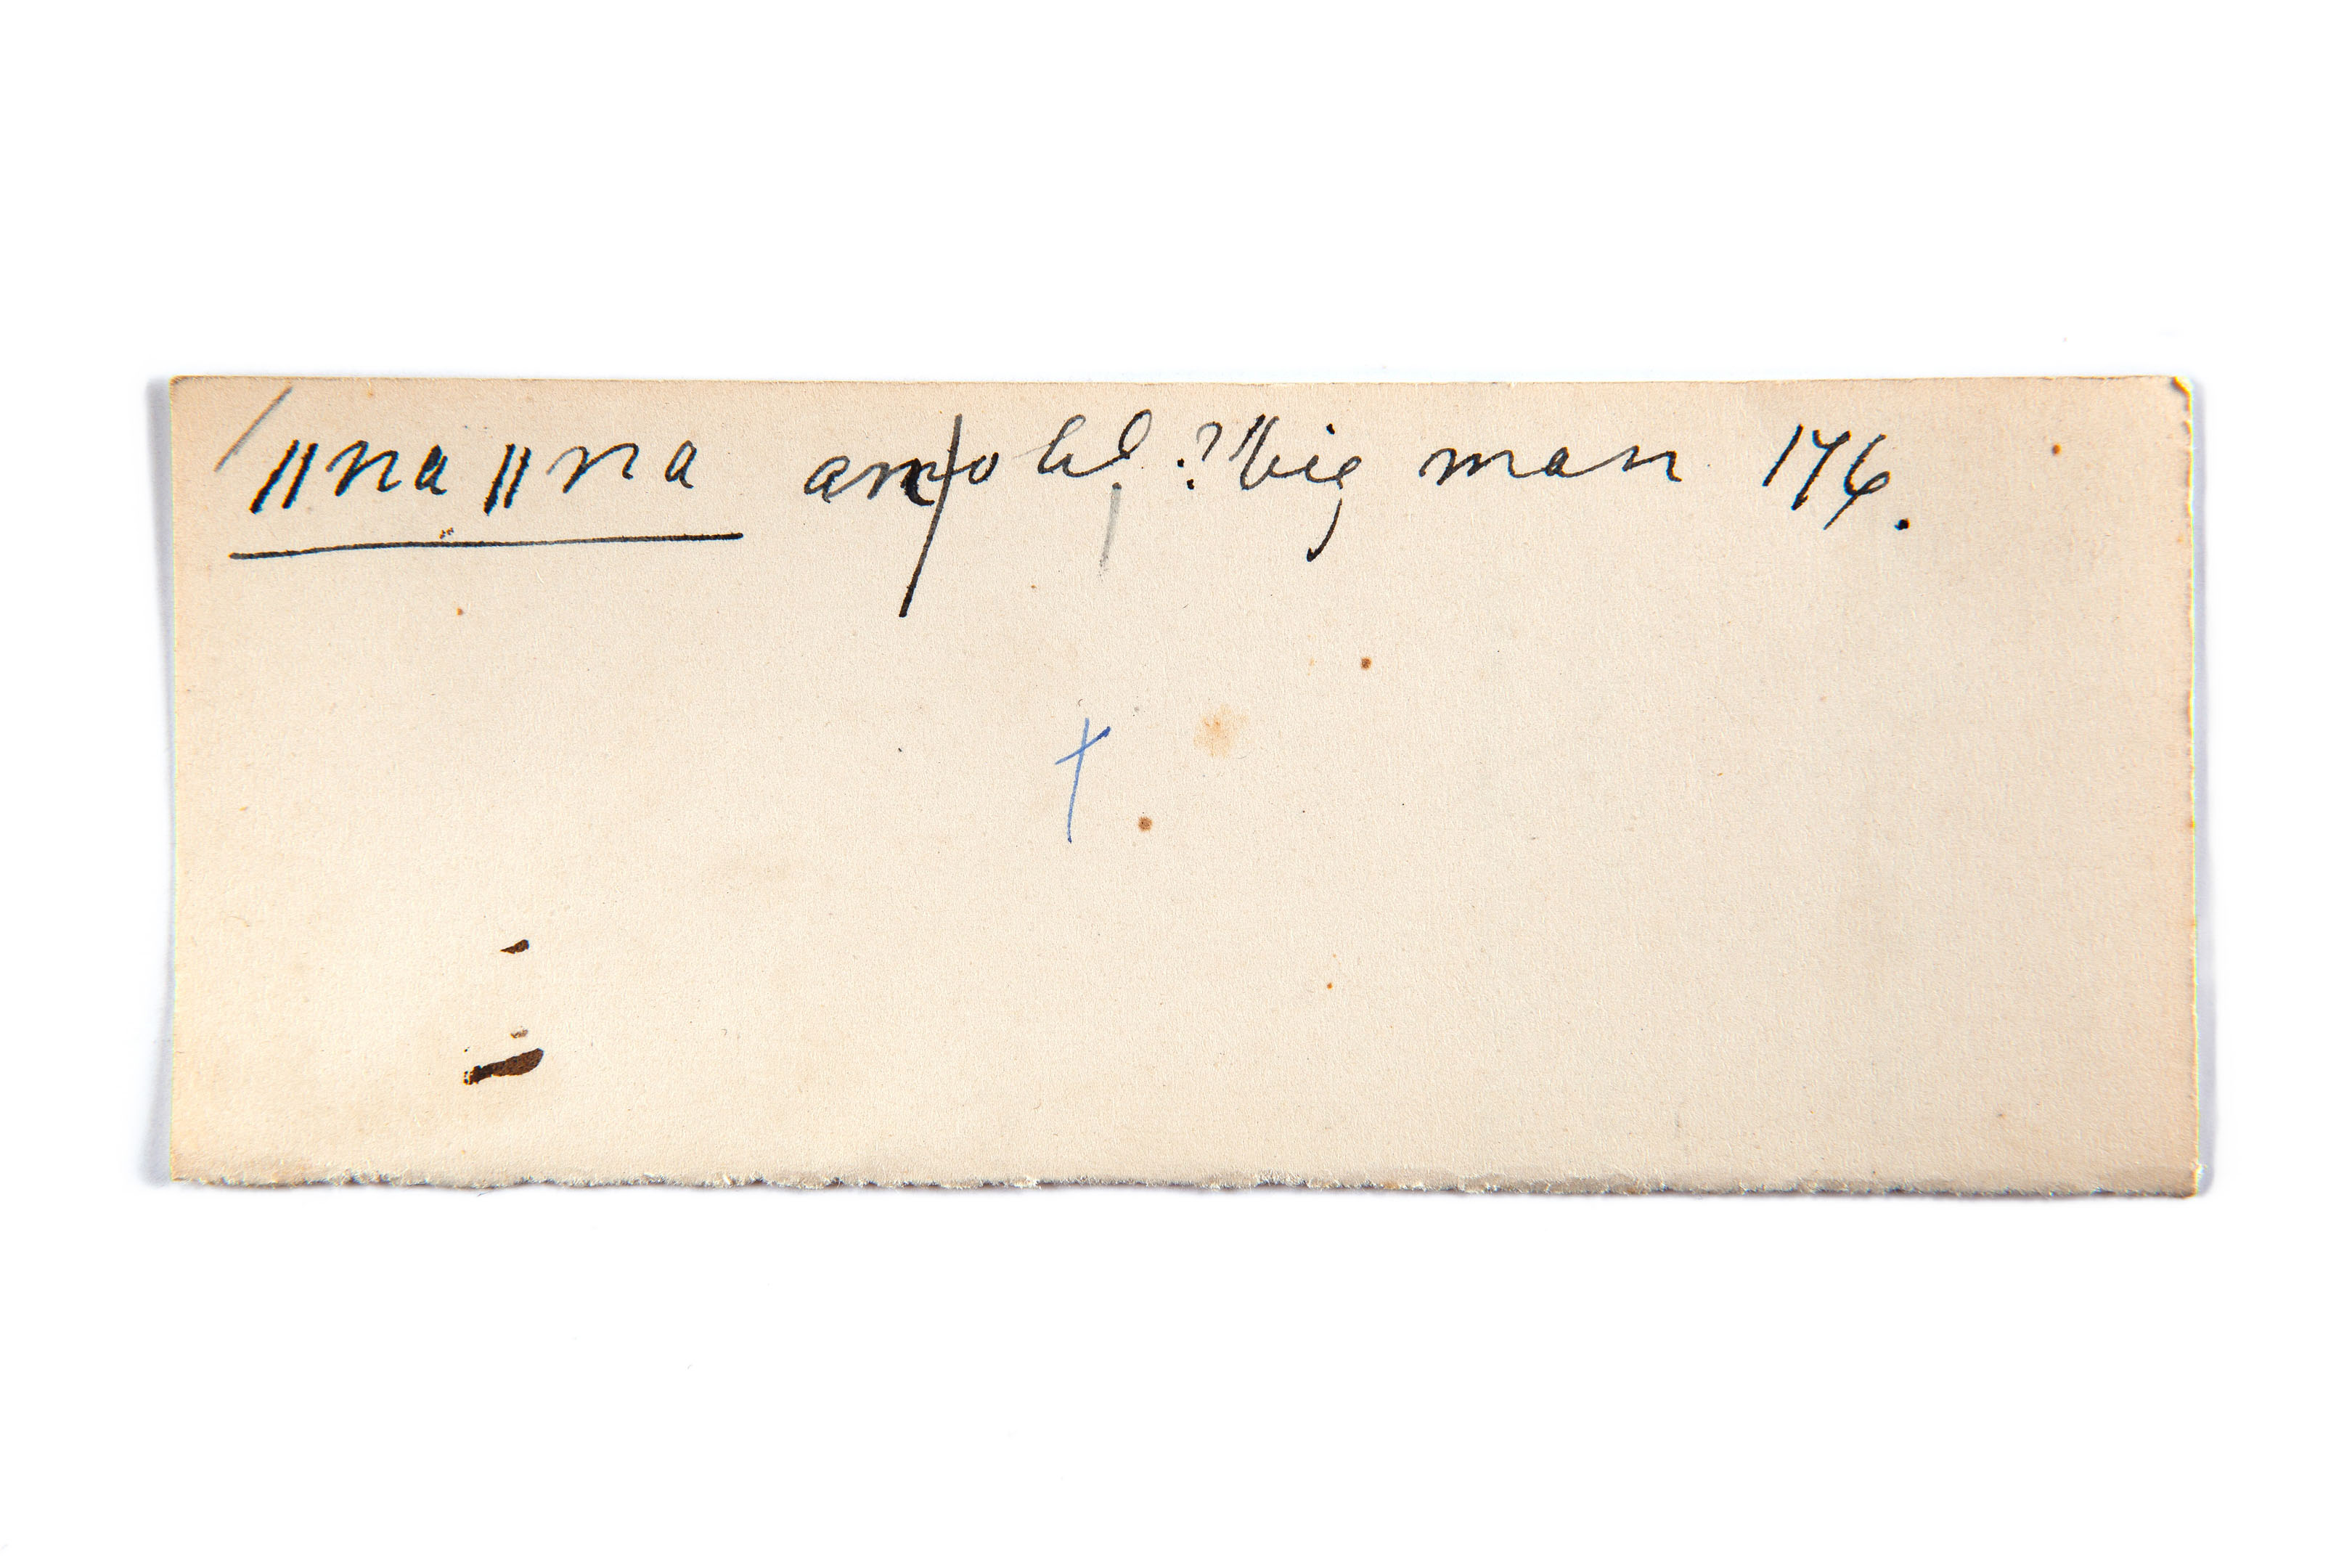 ǁnaǁna an old, ? big man 176.